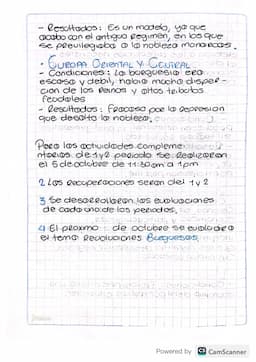 - Resultados: Es un modelo, ya que
acabo con el antiguo regimen, en los que
se previlegiaba a la nobleza monarcas.
• EUROPA ORIENTAL Y CENTRAL
- Condiciones: La burguesia era
escasa y debil, habia mucha disper-
cion de los reinos y altos tributos
feudales
- Resultados: Fracaso por la represion
que desato la nobleza.
Para las actividades compleme
ntarias de 1 y 2 periodo se realizaran
el 5 de octubre de 11:30am a 1pm
2 Las recuperaciones seran del 1 y 2
3 Se desarrollaran las evaluaciones
de cada uno de los periodos.
4 El proximo de octubre se evaluara
el tema: Revoluciones Burguesas
Powered by CS CamScanner